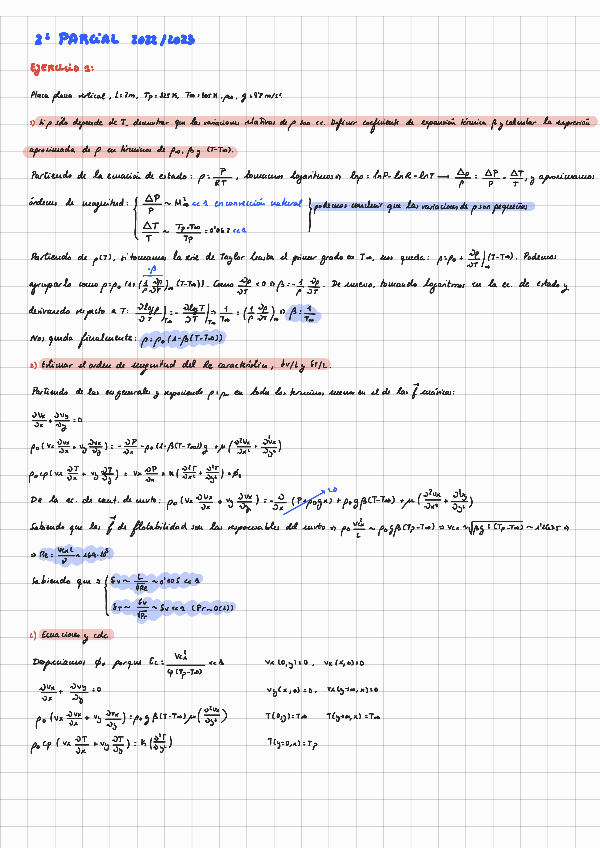 2º PARCIAL 2022/2023
EJERCICIO 1:
Placa plana vertical, L=2m, Tp=325K, T∞=305K, p∞, g=9'8 m/s².
1) Si ρ sólo depende de T, demostrar que las variaciones relativas de ρ son <<. Definir coeficiente de expansión térmica β y calcular la expresión
aproximada de ρ en términos de ρ∞, β y (T-T∞).
Partiendo de la ecuación de estado: ρ = P/RT, tomamos logaritmos → lnρ = lnP - lnR - lnT → Δρ/ρ = ΔP/P - ΔT/T, y aproximamos
órdenes de magnitud: { ΔP/P ~ M∞² <<1 en convección natural
ΔT/T ~ (Tp-T∞)/Tp = 0'062 <<1 } podemos concluir que las variaciones de ρ son pequeñas
Partiendo de ρ(T), si tomamos la serie de Taylor hasta el primer grado en T∞, nos queda: ρ = ρ0 + ∂ρ/∂T|∞ (T-T∞). Podemos
-β
agruparlo como ρ = ρ0 (1 + (1/ρ ∂ρ/∂T)∞ (T-T∞)). Como ∂ρ/∂T < 0 → β = -1/ρ ∂ρ/∂T. De nuevo, tomando logaritmos en la ec. de estado y
derivando respecto a T: ∂logρ/∂T|T∞ = -∂logT/∂T|T∞ → 1/T∞ = (1/ρ ∂ρ/∂T)∞ → β = 1/T∞
Nos queda finalmente: ρ = ρ0 (1-β(T-T∞))
2) Estimar el orden de magnitud del Re característico, δv/L y δT/L.
Partiendo de las ec. generales y suponiendo ρ=ρ0 en todos los términos menos en el de las f másicas:
∂vx/∂x + ∂vy/∂y = 0
ρ0 (vx ∂vx/∂x + vy ∂vx/∂y) = -∂P/∂x - ρ0 (1-β(T-T∞))g + μ (∂²vx/∂x² + ∂²vx/∂y²)
ρ0 cp (vx ∂T/∂x + vy ∂T/∂y) = vx ∂P/∂x + k (∂²T/∂x² + ∂²T/∂y²) + ϕ0
≃0
De la ec. de cant. de mvto: ρ0 (vx ∂vx/∂x + vy ∂vx/∂y) = -∂/∂x (P+ρ0gx) + ρ0gβ(T-T∞) + μ (∂²vx/∂x² + ∂²vx/∂y²)
Sabiendo que las f de flotabilidad son las responsables del mvto → ρ0 vc²/L ~ ρ0gβ(Tp-T∞) → vc ~ √(βgL(Tp-T∞)) ~
⇒ Re = vc L/ν ~
Sabiendo que: { δv ~ L/√Re ~ 0'005 <<1
δT ~ δv/√Pr ~ δv <<1 (Pr ~ O(1))
c) Ecuaciones y cdc
Despreciamos ϕ0 porque Ec = vc²/(cp(Tp-T∞)) <<1 vx(0,y)=0, vx(x,0)=0
∂vx/∂x + ∂vy/∂y = 0 vy(x,0)=0, vx(y→∞,x)=0
ρ0 (vx ∂vx/∂x + vy ∂vx/∂y) = ρ0 g β (T-T∞) + μ (∂²vx/∂y²) T(0,y)=T∞ T(y→∞,x)=T∞
ρ0 cp (vx ∂T/∂x + vy ∂T/∂y) = k (∂²T/∂y²) T(y=0,x)=Tp